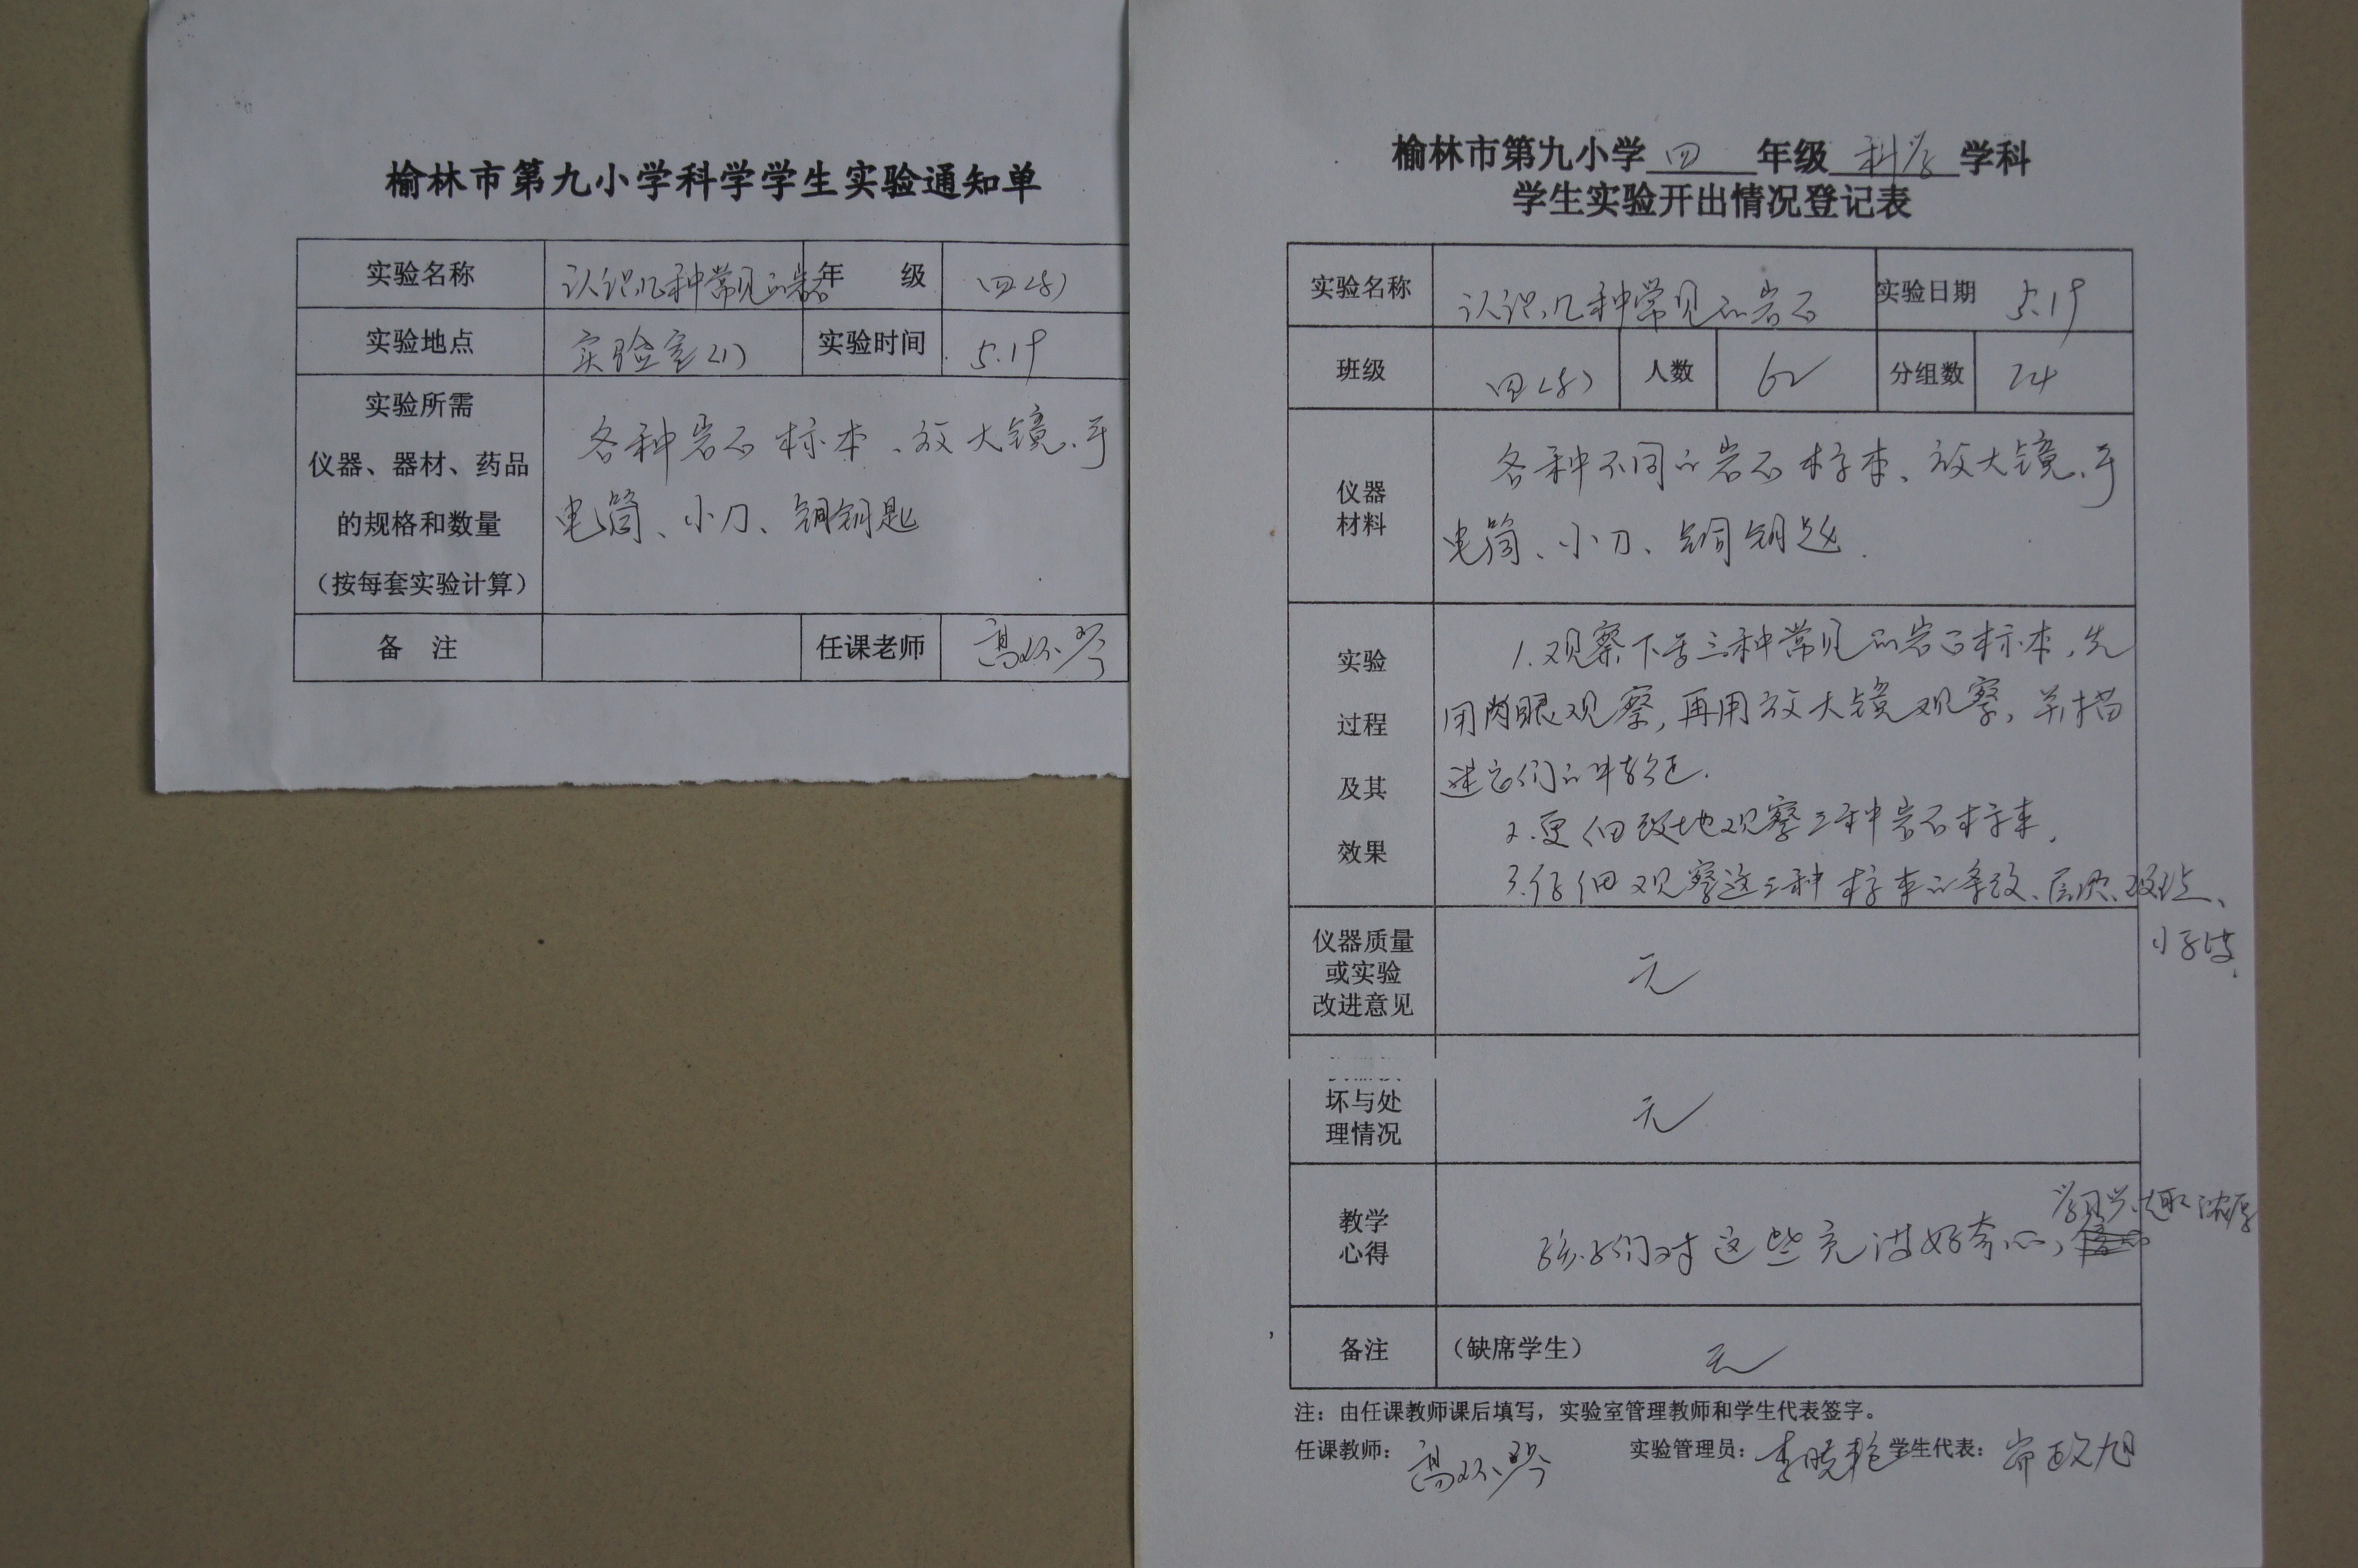 榆林市第九小学科学学生实验通知单
实验名称 认识几种常见的岩石 年 级
实验地点 实验室(1) 实验时间 5.19
实验所需
仪器、器材、药品
的规格和数量
(按每套实验计算)
各种岩石标本、放大镜、手
电筒、小刀、铜钥匙
备 注 任课老师
榆林市第九小学 四 年级 科学 学科
学生实验开出情况登记表
实验名称 认识几种常见的岩石 实验日期 5.19
班级 人数 62 分组数 24
仪器
材料
各种不同的岩石标本、放大镜、手
电筒、小刀、铜钥匙.
实验
过程
及其
效果
1.观察下面三种常见的岩石标本,先
用肉眼观察,再用放大镜观察,并描
述它们的特征.
2.更细致地观察三种岩石标本.
3.仔细观察这三种标本的条纹、层次、斑点、
仪器质量
或实验
改进意见
无
坏与处
理情况
无
教学
心得
孩子们对这些充满好奇心,学习兴趣浓厚
备注 (缺席学生) 无
注:由任课教师课后填写,实验室管理教师和学生代表签字。
任课教师: 实验管理员: 学生代表: